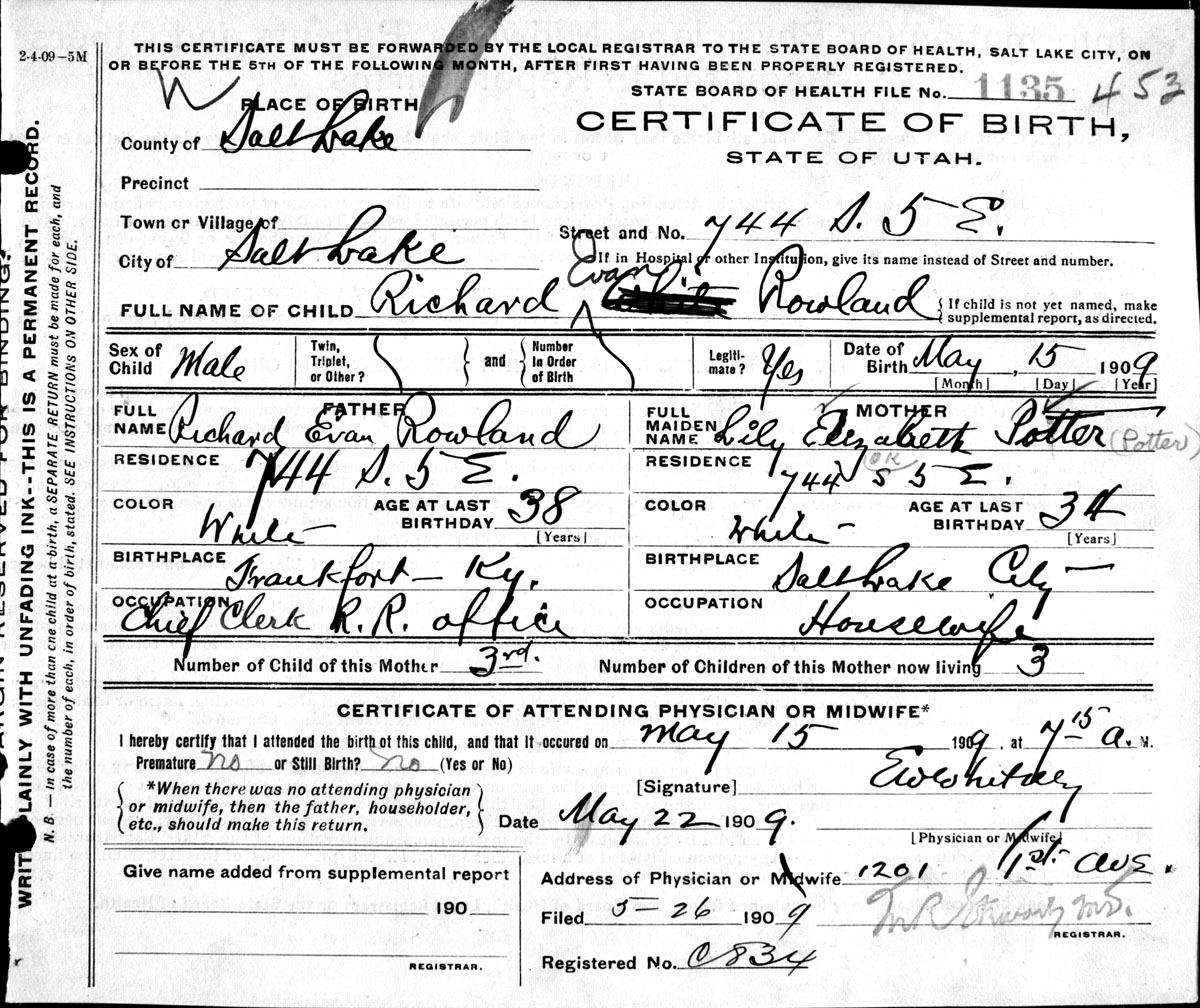 2-4-09-5M
THIS CERTIFICATE MUST BE FORWARDED BY THE LOCAL REGISTRAR TO THE STATE BOARD OF HEALTH, SALT LAKE CITY, ON
OR BEFORE THE 5TH OF THE FOLLOWING MONTH, AFTER FIRST HAVING BEEN PROPERLY REGISTERED.
STATE BOARD OF HEALTH FILE No. 1135 453
W
PLACE OF BIRTH
CERTIFICATE OF BIRTH,
STATE OF UTAH.
County of Salt Lake
Precinct
Town or Village of
Street and No. 744 S. 5 E.
City of Salt Lake
If in Hospital or other Institution, give its name instead of Street and number.
FULL NAME OF CHILD Richard Evan Rowland
If child is not yet named, make
supplemental report, as directed.
Sex of Child Male
Twin, Triplet, or Other? and Number in Order of Birth
Legitimate? Yes
Date of Birth May, 15 1909
[Month] [Day] [Year]
FATHER
FULL NAME Richard Evan Rowland
RESIDENCE 744 S. 5 E.
COLOR White
AGE AT LAST BIRTHDAY 38
[Years]
BIRTHPLACE Frankfort - Ky.
OCCUPATION Chief Clerk R.R. Office
MOTHER
FULL MAIDEN NAME Lily Elizabeth Potter (Potter)
OK
RESIDENCE 744 S 5 E.
COLOR White -
AGE AT LAST BIRTHDAY 34
[Years]
BIRTHPLACE Salt Lake City -
OCCUPATION Housewife
Number of Child of this Mother 3rd. Number of Children of this Mother now living 3
CERTIFICATE OF ATTENDING PHYSICIAN OR MIDWIFE*
I hereby certify that I attended the birth of this child, and that it occured on May 15 1909, at 7 15 a. M.
Premature No or Still Birth? No (Yes or No)
[Signature] EW Whitney
*When there was no attending physician
or midwife, then the father, householder,
etc., should make this return.
Date May 22 1909.
[Physician or Midwife]
Give name added from supplemental report
190
REGISTRAR.
Address of Physician or Midwife 1201 1st Ave.
Filed 5-26 1909
REGISTRAR.
Registered No. C834
MARGIN RESERVED FOR BINDING.
WRITE PLAINLY WITH UNFADING INK--THIS IS A PERMANENT RECORD.
N. B.—In case of more than one child at a birth, a SEPARATE RETURN must be made for each, and
the number of each, in order of birth, stated. SEE INSTRUCTIONS ON OTHER SIDE.